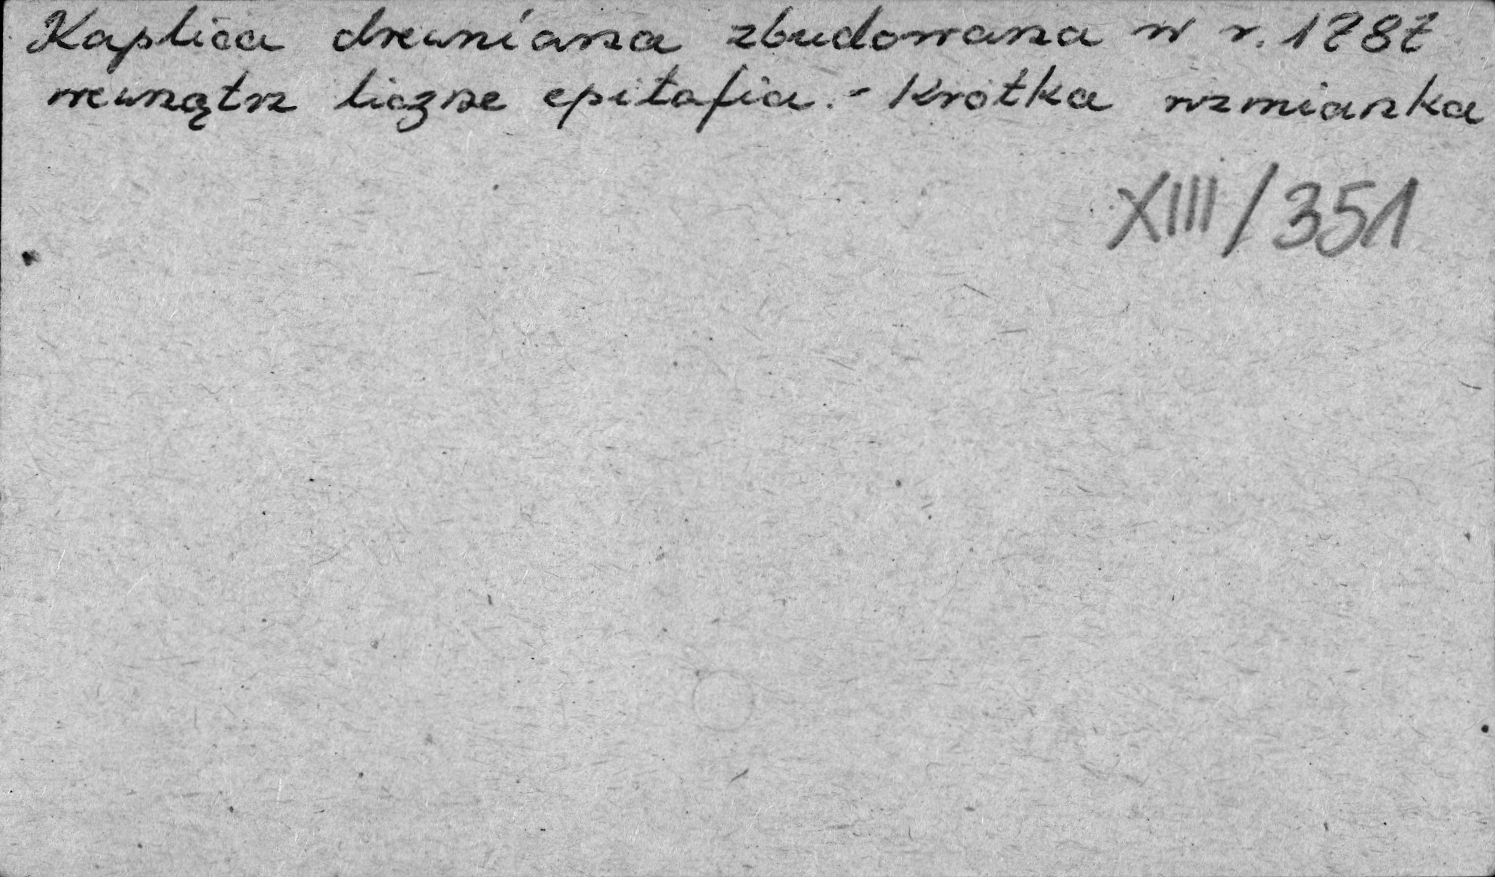 Kaplica drewniana zbudowana w r. 1787
wewnątrz liczne epitafia. - Krótka wzmianka
XIII/351